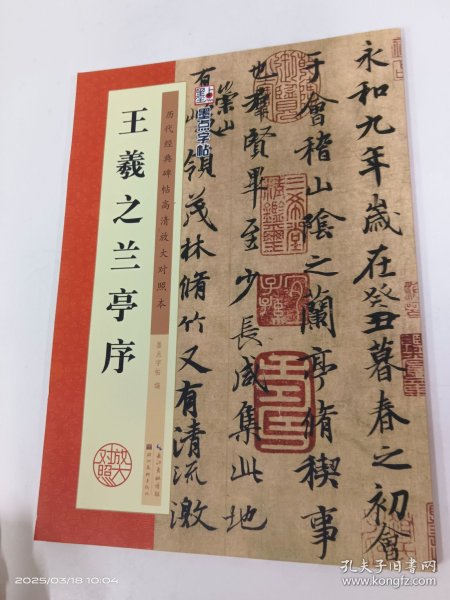 王羲之兰亭序
历代经典碑帖高清放大对照本
墨点字帖 编
放大
对照
长江出版传媒
湖北美术出版社
墨点字帖
永和九年歲在癸丑暮春之初會
于會稽山陰之蘭亭脩稧事
也羣賢畢至少長咸集此地
有崇山
領茂林脩竹又有清流激
2025/03/18 10:04
孔夫子旧书网